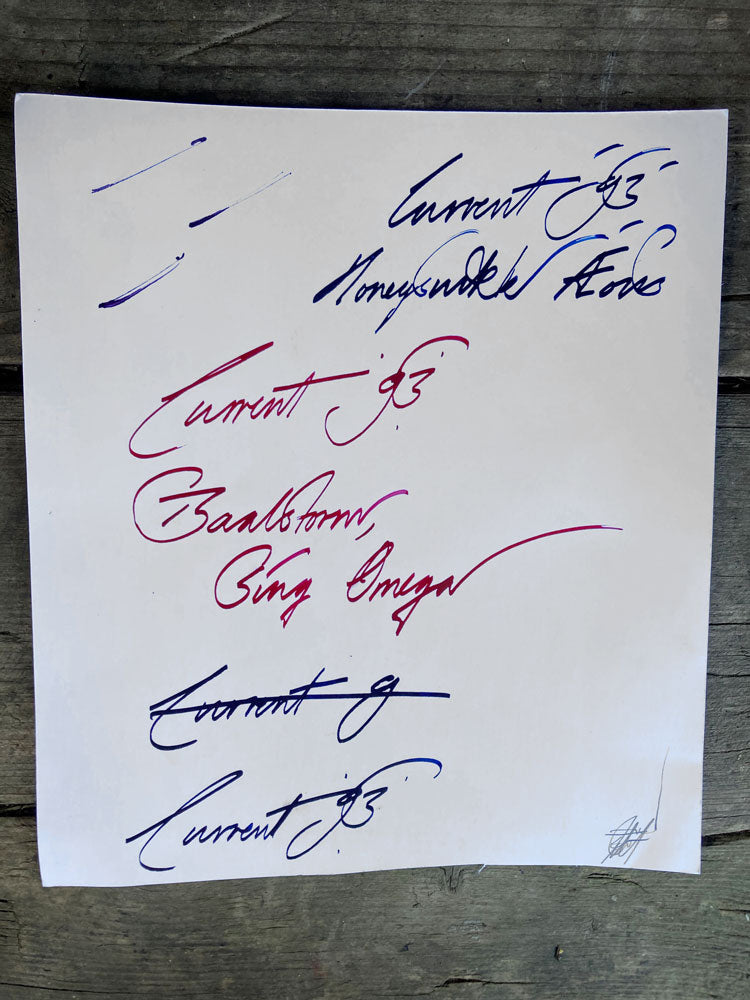 Current '93'
Honeysuckle Æons
Current '93'
Baalstorm,
Sing Omega
Current 9
Current '93'